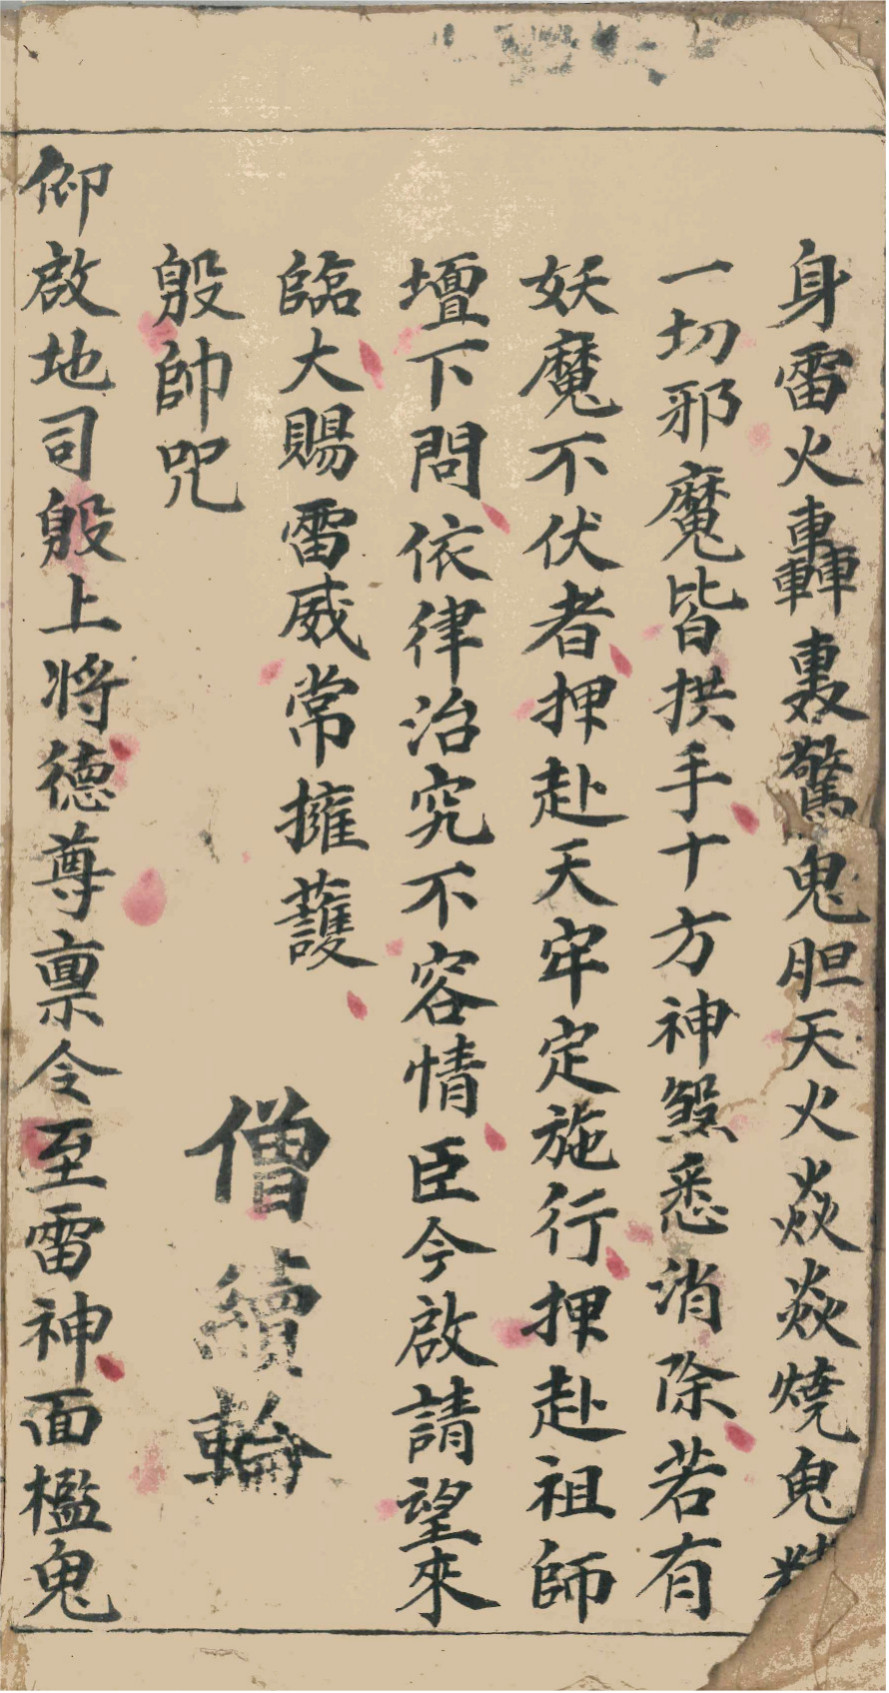 身雷火轟轟驚鬼胆天火焱焱燒鬼精
一切邪魔皆拱手十方神煞悉消除若有
妖魔不伏者押赴天牢定施行押赴祖師
壇下問依律治究不容情臣今啟請望來
臨大賜雷威常擁護
僧續輪
殷帥咒
仰啟地司殷上將德尊禀令至雷神面檻鬼